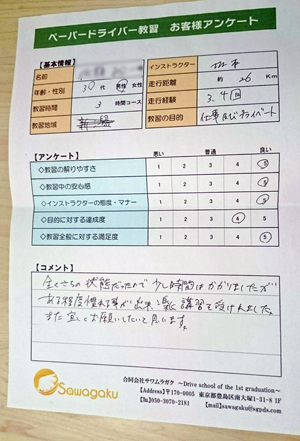 ペーパードライバー教習 お客様アンケート
【基本情報】
名前
インストラクター
年齢・性別 30代 男性 女性
走行距離 約 26 Km
教習時間 3 時間コース
走行経験 3.4回
教習地域 新潟
教習の目的 仕事及びプライベート
【アンケート】 悪い 普通 良い
◇教習の解りやすさ 1 2 3 4 5
◇教習中の安心感 1 2 3 4 5
◇インストラクターの態度・マナー 1 2 3 4 5
◇目的に対する達成度 1 2 3 4 5
◇教習全般に対する満足度 1 2 3 4 5
【コメント】
状態だったので少し時間はかかりましたが
ある程度慣れる事が出来、楽に講習を受けれました。
また宜しくお願いしたいと思います。
Sawagaku
合同会社サワムラガク ～Drive school of the 1st graduation～
【Address】〒170-0005 東京都豊島区南大塚1-31-8 1F
【Tel】050-3070-2181 【mail】sawagaku@sgpds.com